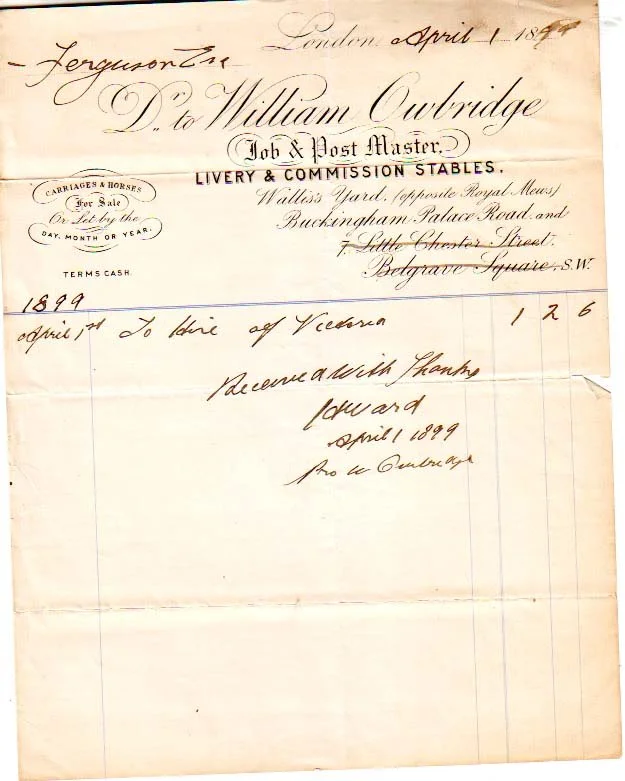 London April 1 1899
- Ferguson Esq
Dr. to William Owbridge
Job & Post Master.
LIVERY & COMMISSION STABLES.
CARRIAGES & HORSES
For Sale
Or Let by the
DAY, MONTH OR YEAR.
TERMS CASH.
Wallis's Yard, (opposite Royal Mews)
Buckingham Palace Road, and
7, Little Chester Street,
Belgrave Square, S.W.
1899
April 1st To Hire of Victoria 1 2 6
Received With Thanks
April 1 1899
Pro W Owbridge